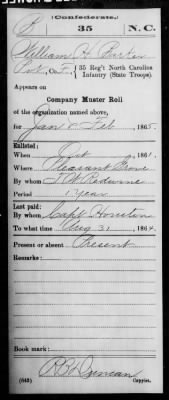 (Confederate.)
35 N.C.
William H.
Pvt., Co. 35 Reg't North Carolina
Infantry (State Troops).
Appears on
Company Muster Roll
of the organization named above,
for Jan & Feb, 1865.
Enlisted:
When Oct, 1861.
Where Pleasant Grove
By whom
Period 1 year
Last paid:
By whom Capt. Houston
To what time Aug 31, 1864.
Present or absent Present
Remarks:
Book mark:
R B Duncan
(642) Copyist.